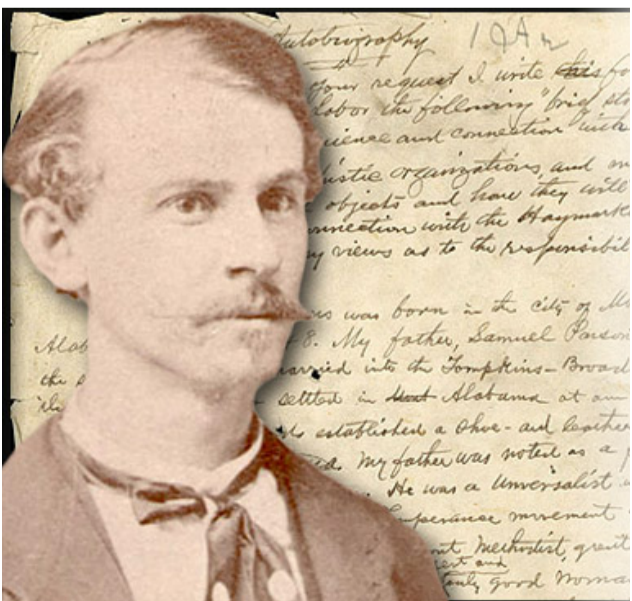 Autobiography
your request I write this fo
Labor the following "brief sto
ience and connection with
istic organizations, and m
objects and how they will
nnection with the Haymark
y views as to the responsibil
ns was born in the city of M
Alab 8. My father, Samuel Parson
the s married into the Tompkins-Broad
settled in Alabama at an
established a shoe- and leather
My father was noted as a p
He was a Universalist
emperance movement
out Methodist, great
ent and
truly good Woman